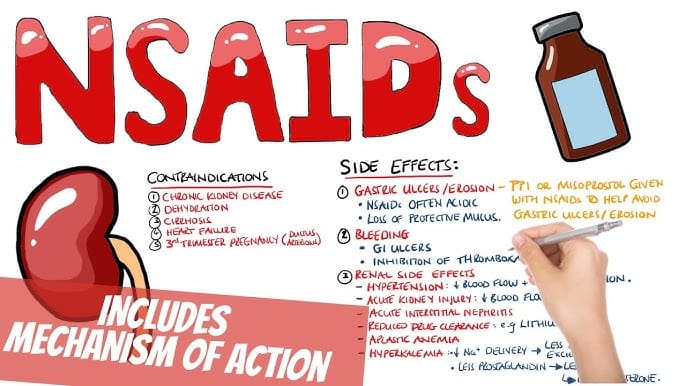 NSAIDs
CONTRAINDICATIONS
1 CHRONIC KIDNEY DISEASE
2 DEHYDRATION
3 CIRRHOSIS
4 HEART FAILURE
5 3rd TRIMESTER PREGNANCY (DUCTUS ARTERIOSUS)
SIDE EFFECTS:
1 GASTRIC ULCERS/EROSION – PPI OR MISOPROSTOL GIVEN
WITH NSAIDS TO HELP AVOID
GASTRIC ULCERS/EROSION
• NSAIDS OFTEN ACIDIC
• LOSS OF PROTECTIVE MUCUS.
2 BLEEDING
• GI ULCERS
• INHIBITION OF
3 RENAL SIDE EFFECTS
– HYPERTENSION: ↓ BLOOD FLOW +
– ACUTE KIDNEY INJURY: ↓ BLOOD
– ACUTE INTERSTITIAL NEPHRITIS
– REDUCED DRUG CLEARANCE: e.g
– APLASTIC ANEMIA
– HYPERKALEMIA: ↓ Na⁺ DELIVERY → LESS
• LESS PROSTAGLANDIN → LESS
INCLUDES
MECHANISM OF ACTION